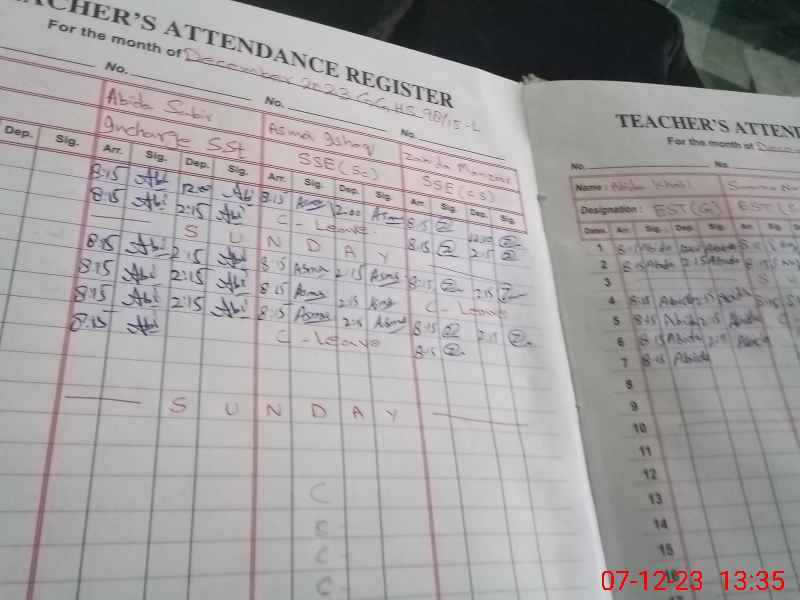 TEACHER'S ATTENDANCE REGISTER
For the month of December 2023 G.G.HS 98/15-L
No. No. No.
Abida Sabir Asma Ishaq Zahida Manzoor
Incharge SSt SSE(Sc) SSE(CS)
Dep. Sig. Arr. Sig. Dep. Sig. Arr. Sig. Dep. Sig. Arr Sig. Dep. Sig.
8:15 Abi 12:00 Abi 8:15 Asma 12:00 Asma 8:15 12:00
8:15 Abi 2:15 Abi C - Leave 8:15 2:15
S U N D A Y
8:15 Abi 2:15 Abi 8:15 Asma 2:15 Asma 8:15 2:15
8:15 Abi 2:15 Abi 8:15 Asma 2:15 Asma C - Leave
8:15 Abi 2:15 Abi 8:15 Asma 2:15 Asma 8:15 2:15
8:15 Abi C - Leave 8:15
S U N D A Y
C
C
C
C
TEACHER'S ATTEN
For the month of Dece
No. No.
Name : Abida Khalil
Designation : EST(G) EST(
Dates Arr Sig. Dep. Sig. Arr Sig
1 8:15 Abida 12:00 Abida 8:15
2 8:15 Abida 2:15 Abida 8:15
3 S U
4 8:15 Abida 2:15 Abida 8:15
5 8:15 Abida 2:15 Abida
6 8:15 Abida 2:15 Abida
7 8:15 Abida
8
9
10
11
12
13
14
15
16
07-12-23 13:35